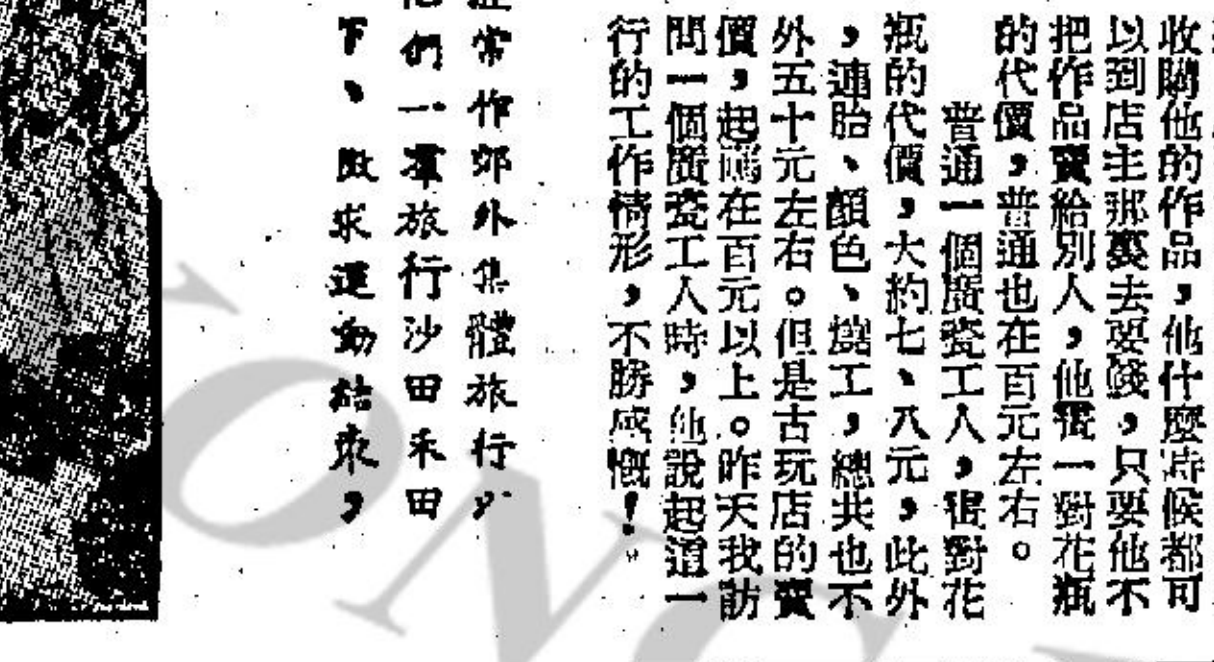 收購他的作品，他什麼時候都可
以到店主那裏去要錢，只要他不
把作品賣給別人，他畫一對花瓶
的代價，普通也在百元左右。
普通一個廣瓷工人，畫對花
瓶的代價，大約七、八元，此外
，連胎、顏色、燒工，總共也不
外五十元左右。但是古玩店的賣
價，起碼在百元以上。昨天我訪
問一個廣瓷工人時，他說起這一
行的工作情形，不勝感慨！。
常作郊外集體旅行，
們一羣旅行沙田禾田
下、歐求運動結束，